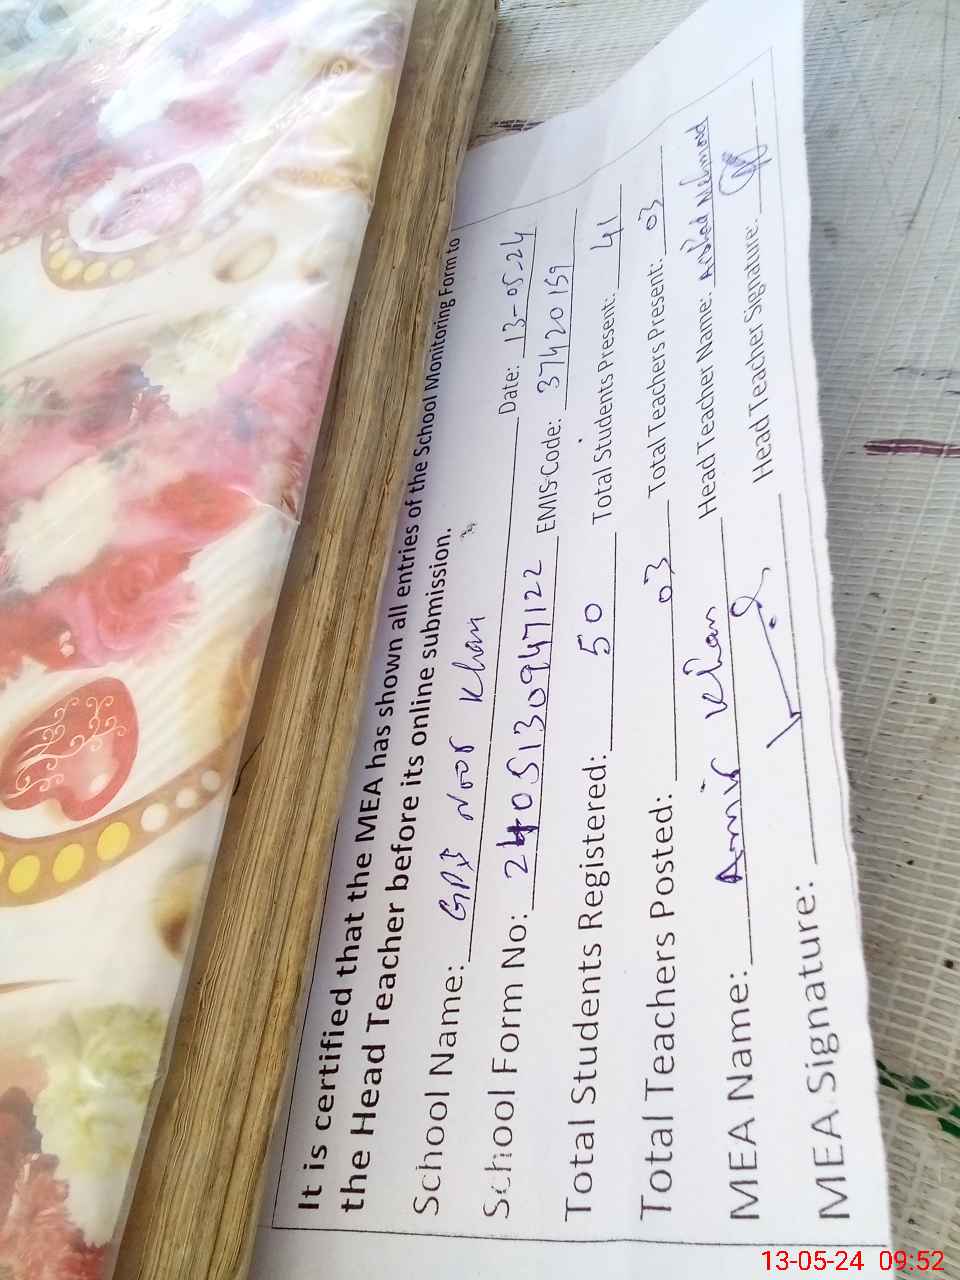 It is certified that the MEA has shown all entries of the School Monitoring Form to
the Head Teacher before its online submission.
School Name: GPS Noor Khan Date: 13-05-24
School Form No: 2405130947122 EMIS Code: 37420159
Total Students Registered: 50 Total Students Present: 41
Total Teachers Posted: 03 Total Teachers Present: 03
MEA Name: Amir Khan Head Teacher Name: Arshad Mehmood
MEA Signature: Head Teacher Signature:
13-05-24 09:52